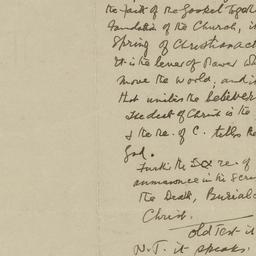 the faith of the Gospel togeth
foundation of the Church, i
Spring of Christian act
It is the lever of Power wh
move the World, and i
that unites the believer
The dest of Christ is the
& the re. of C. tells
God.
Further the re. of
announcence in the Scri
the Death, Burial
Christ.
Old Test it
N.T. it speaks.